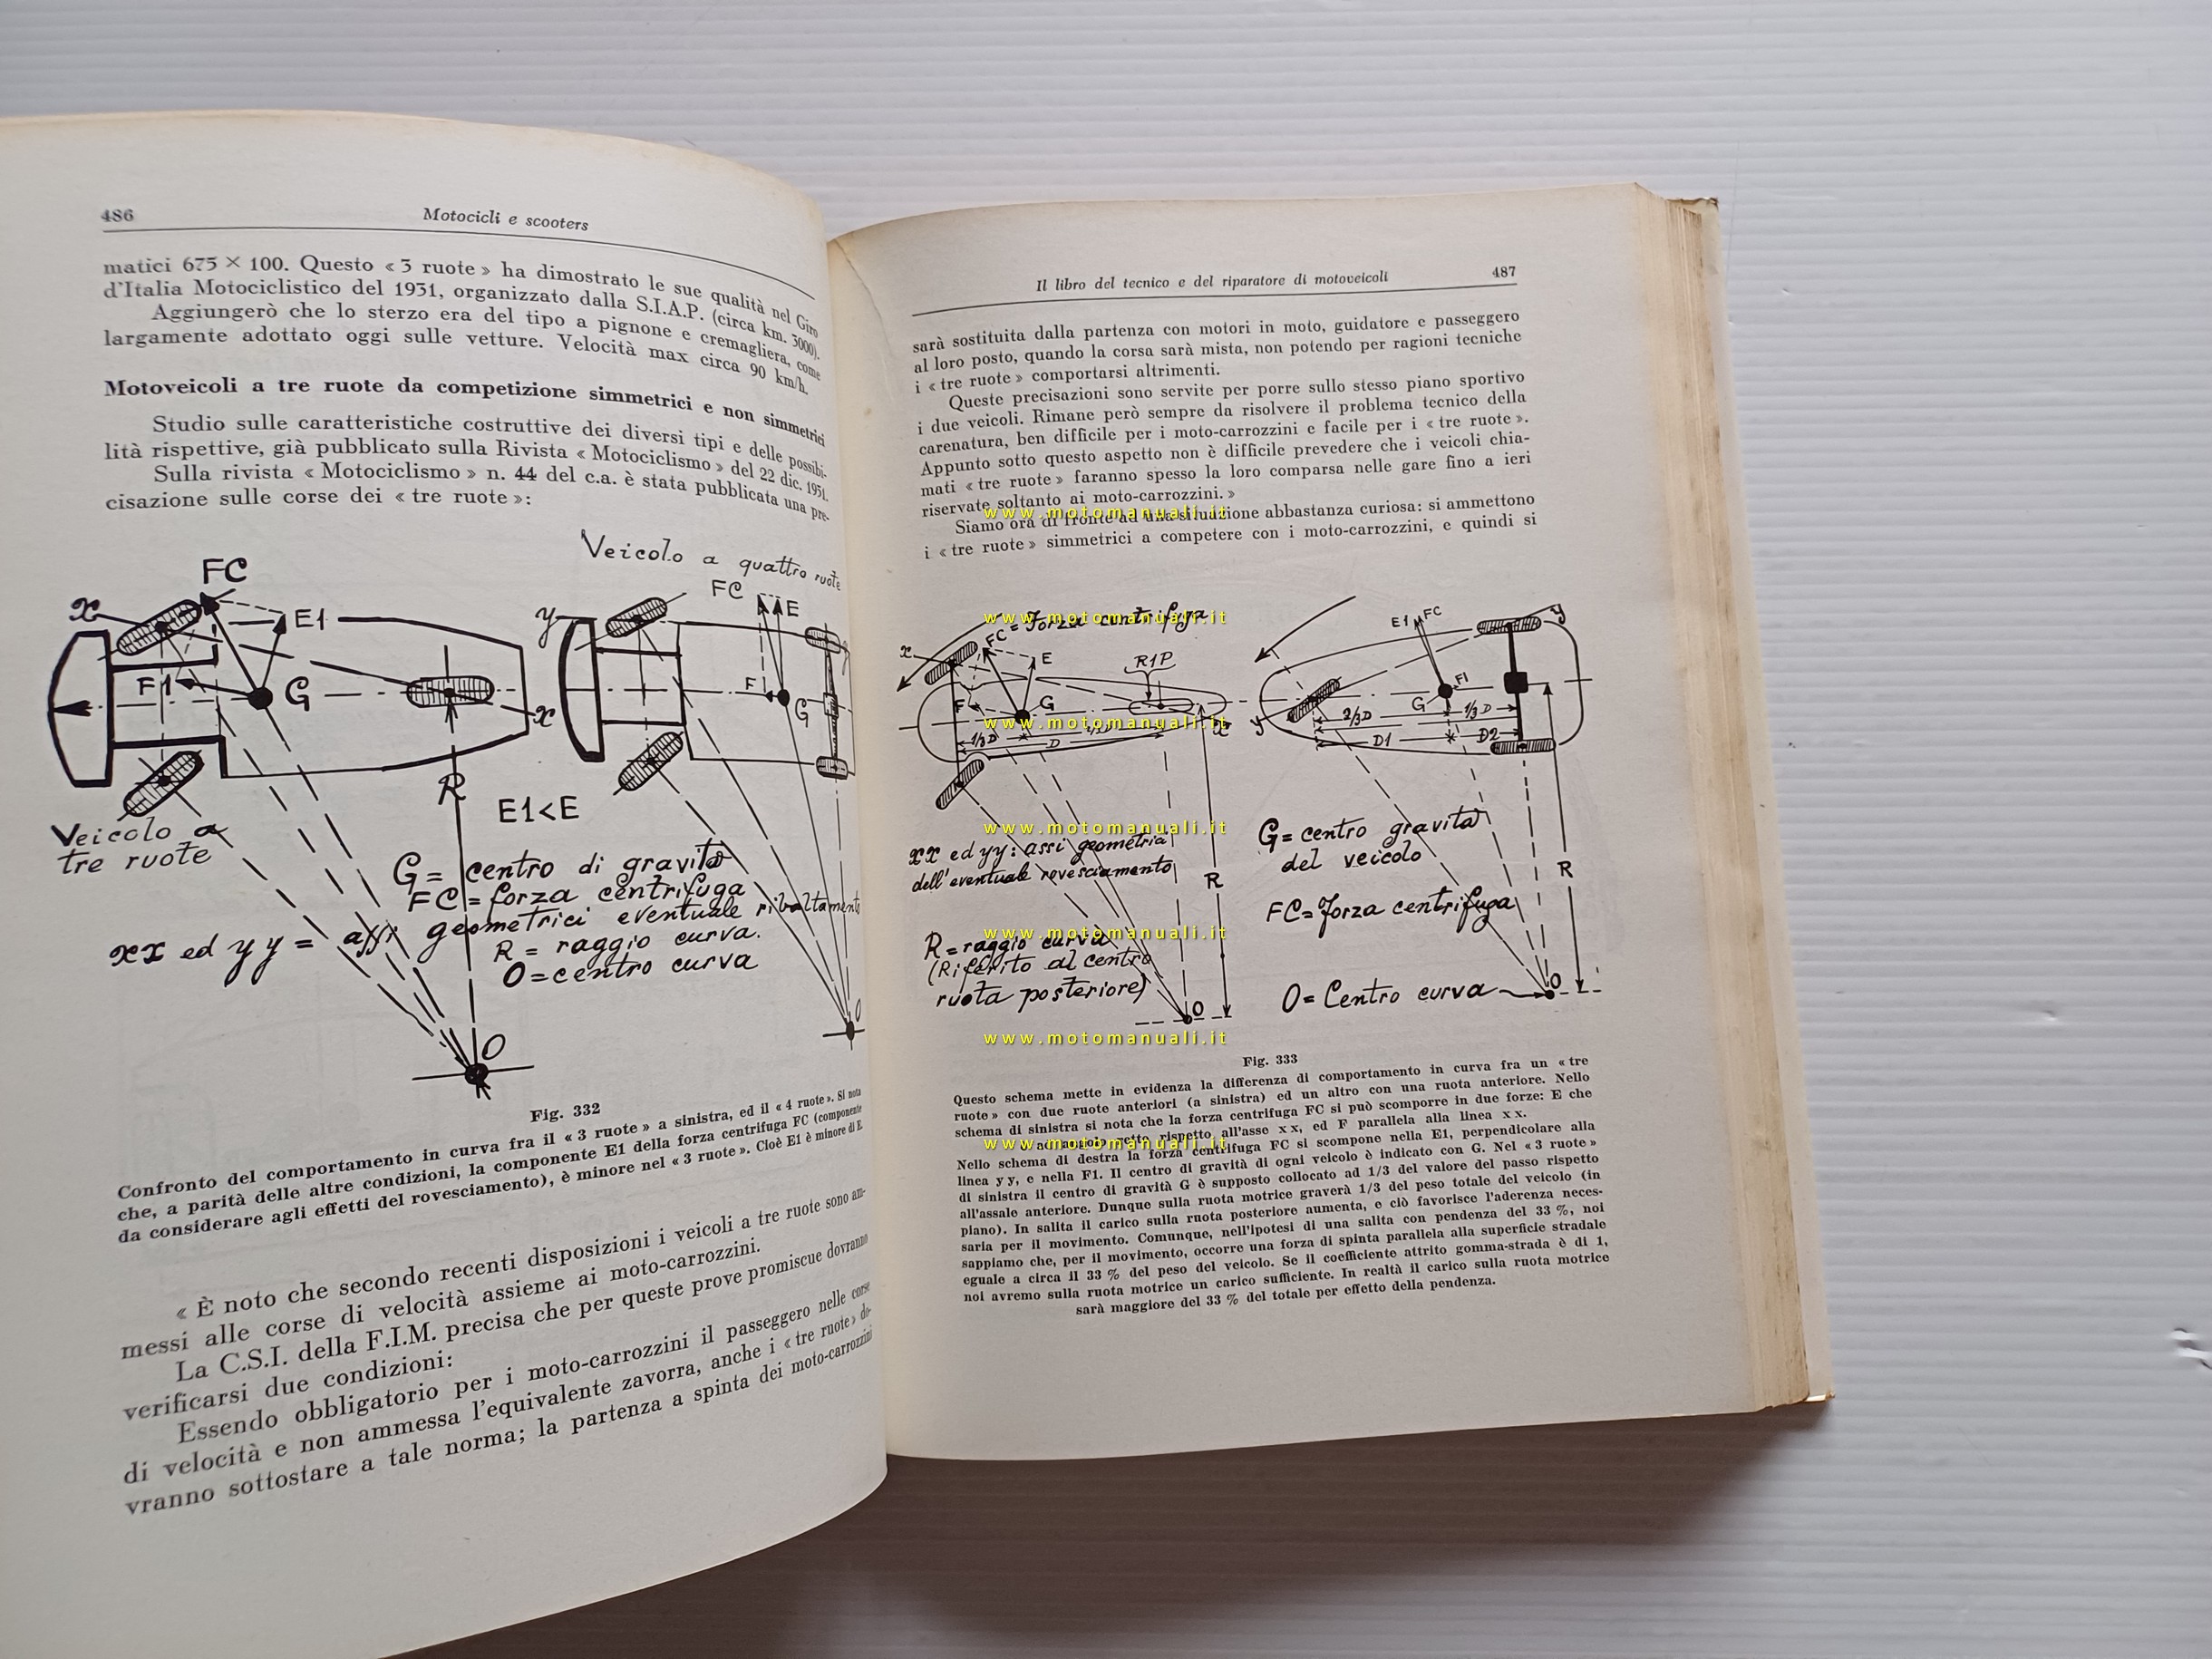 486
Motocicli e scooters
matici 675 × 100. Questo « 3 ruote » ha dimostrato le sue qualità nel Giro
d'Italia Motociclistico del 1931, organizzato dalla S.I.A.P. (circa km. 3000).
Aggiungerò che lo sterzo era del tipo a pignone e cremagliera, come
largamente adottato oggi sulle vetture. Velocità max circa 90 km/h.
Motoveicoli a tre ruote da competizione simmetrici e non simmetrici
Studio sulle caratteristiche costruttive dei diversi tipi e delle possibi-
lità rispettive, già pubblicato sulla Rivista « Motociclismo » del 22 dic. 1951.
Sulla rivista « Motociclismo » n. 44 del c.a. è stata pubblicata una pre-
cisazione sulle corse dei « tre ruote »:
Veicolo a quattro ruote
FC
x
E1
F1
G
x
R
Veicolo a
tre ruote
y
FC
E
F
G
E1<E
G = centro di gravità
FC = forza centrifuga
xx ed yy = assi geometrici eventuale ribaltamento
R = raggio curva.
O = centro curva
O
O
Fig. 332
Confronto del comportamento in curva fra il « 3 ruote » a sinistra, ed il « 4 ruote ». Si nota
che, a parità delle altre condizioni, la componente E1 della forza centrifuga FC (componente
da considerare agli effetti del rovesciamento), è minore nel « 3 ruote ». Cioè E1 è minore di E.
« È noto che secondo recenti disposizioni i veicoli a tre ruote sono am-
messi alle corse di velocità assieme ai moto-carrozzini.
La C.S.I. della F.I.M. precisa che per queste prove promiscue dovranno
verificarsi due condizioni:
Essendo obbligatorio per i moto-carrozzini il passeggero nelle corse
di velocità e non ammessa l'equivalente zavorra, anche i « tre ruote » do-
vranno sottostare a tale norma; la partenza a spinta dei moto-carrozzini
Il libro del tecnico e del riparatore di motoveicoli
487
sarà sostituita dalla partenza con motori in moto, guidatore e passeggero
al loro posto, quando la corsa sarà mista, non potendo per ragioni tecniche
i « tre ruote » comportarsi altrimenti.
Queste precisazioni sono servite per porre sullo stesso piano sportivo
i due veicoli. Rimane però sempre da risolvere il problema tecnico della
carenatura, ben difficile per i moto-carrozzini e facile per i « tre ruote ».
Appunto sotto questo aspetto non è difficile prevedere che i veicoli chia-
mati « tre ruote » faranno spesso la loro comparsa nelle gare fino a ieri
riservate soltanto ai moto-carrozzini. »
www.motomanuali.it
Siamo ora di fronte ad una situazione abbastanza curiosa: si ammettono
i « tre ruote » simmetrici a competere con i moto-carrozzini, e quindi si
www.motomanuali.it
FC = Forza centrifuga
x
E
R1P
F
G
x
1/3 D
D
www.motomanuali.it
E1
FC
y
F1
G
2/3 D
1/3 D
D1
D2
y
www.motomanuali.it
xx ed yy: assi geometria
dell'eventuale rovesciamento
R
G = centro gravità
del veicolo
R
FC = Forza centrifuga
www.motomanuali.it
R = raggio curva
(Riferito al centro
ruota posteriore)
O
O = Centro curva
O
www.motomanuali.it
Fig. 333
Questo schema mette in evidenza la differenza di comportamento in curva fra un « tre
ruote » con due ruote anteriori (a sinistra) ed un altro con una ruota anteriore. Nello
schema di sinistra si nota che la forza centrifuga FC si può scomporre in due forze: E che
rispetto all'asse x x, ed F parallela alla linea x x.
www.motomanuali.it
Nello schema di destra la forza centrifuga FC si scompone nella E1, perpendicolare alla
linea y y, e nella F1. Il centro di gravità di ogni veicolo è indicato con G. Nel « 3 ruote »
di sinistra il centro di gravità G è supposto collocato ad 1/3 del valore del passo rispetto
all'assale anteriore. Dunque sulla ruota motrice graverà 1/3 del peso totale del veicolo (in
piano). In salita il carico sulla ruota posteriore aumenta, e ciò favorisce l'aderenza neces-
saria per il movimento. Comunque, nell'ipotesi di una salita con pendenza del 33 %, noi
sappiamo che, per il movimento, occorre una forza di spinta parallela alla superficie stradale
eguale a circa il 33 % del peso del veicolo. Se il coefficiente attrito gomma-strada è di 1,
noi avremo sulla ruota motrice un carico sufficiente. In realtà il carico sulla ruota motrice
sarà maggiore del 33 % del totale per effetto della pendenza.